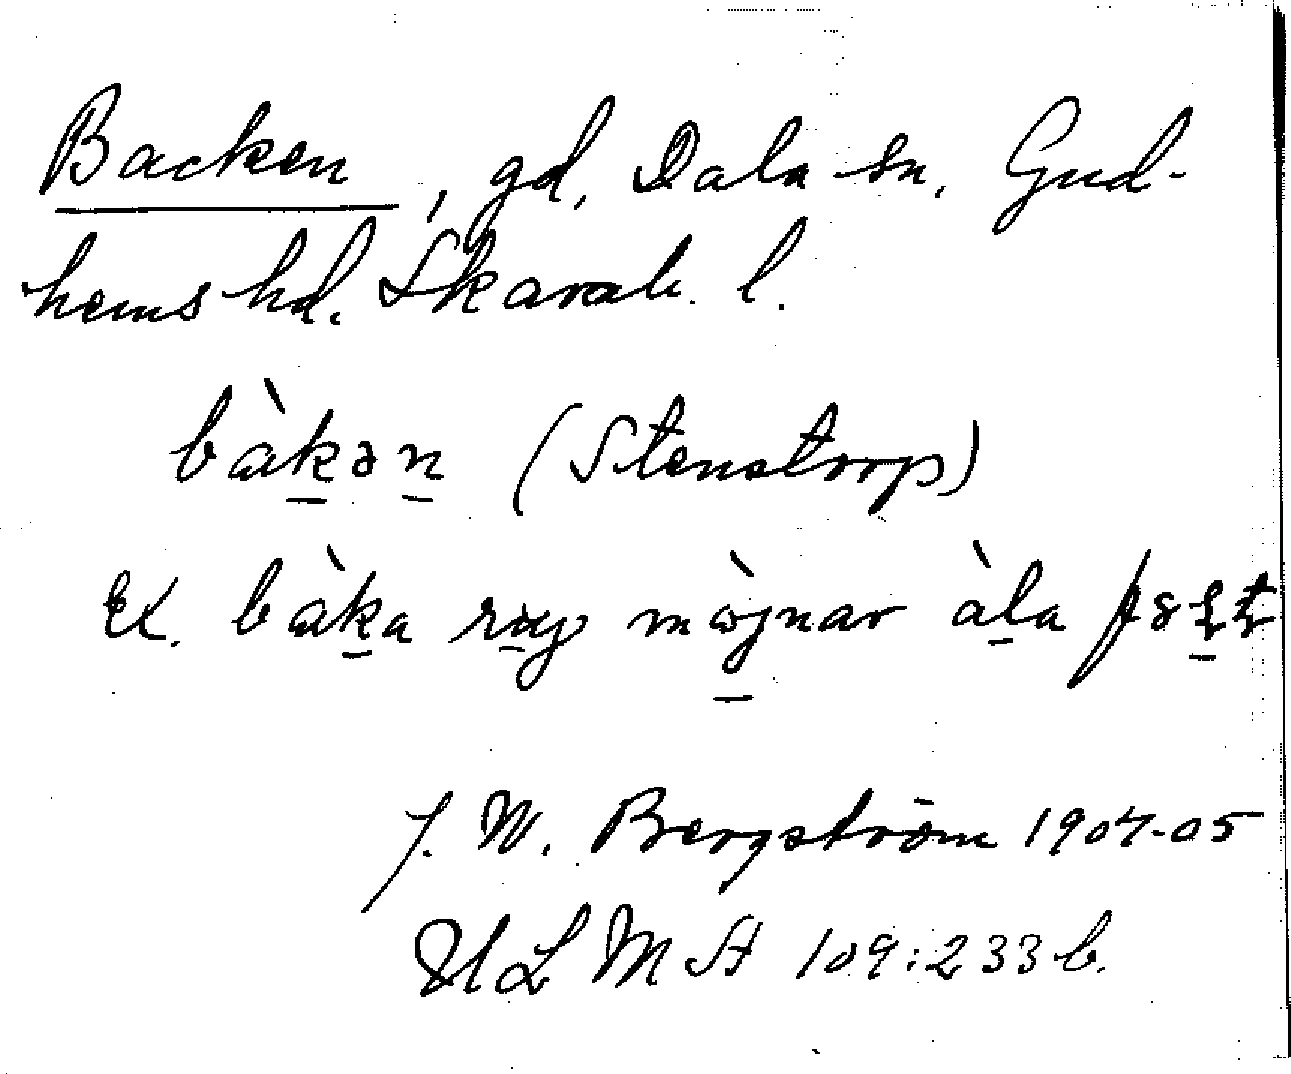 Backen, gd, Dala sn. Gud-
hems hd. Skarab. l.
bàkən (Stenstorp)
Ex. bàka
J. W. Bergström 1904-05
ULMA 109:233 b.